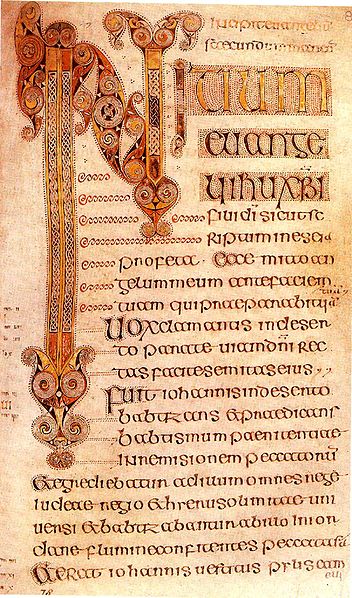 secundum
INITIUM
EUANGE
LII IHU XPI
fili di sicut sc
riptum in eseia
profeta Ecce mitto an
gelum meum ante faciem
tuam qui praeparabit uiam
tuam
Uox clamantis in deser
to parate uiam dni rec
tas facite semitas eius
Fuit iohannis in deserto
babtizans & praedicans
babtismum paenitentiae
in remisionem peccatorum
& egrediebatur ad illum omnes
iudeae regio & hierusolimitae uni
uersi & babtizabantur ab illo in ior
dane flumine confitentes peccata sua
& erat iohannis uestitus pilis cam